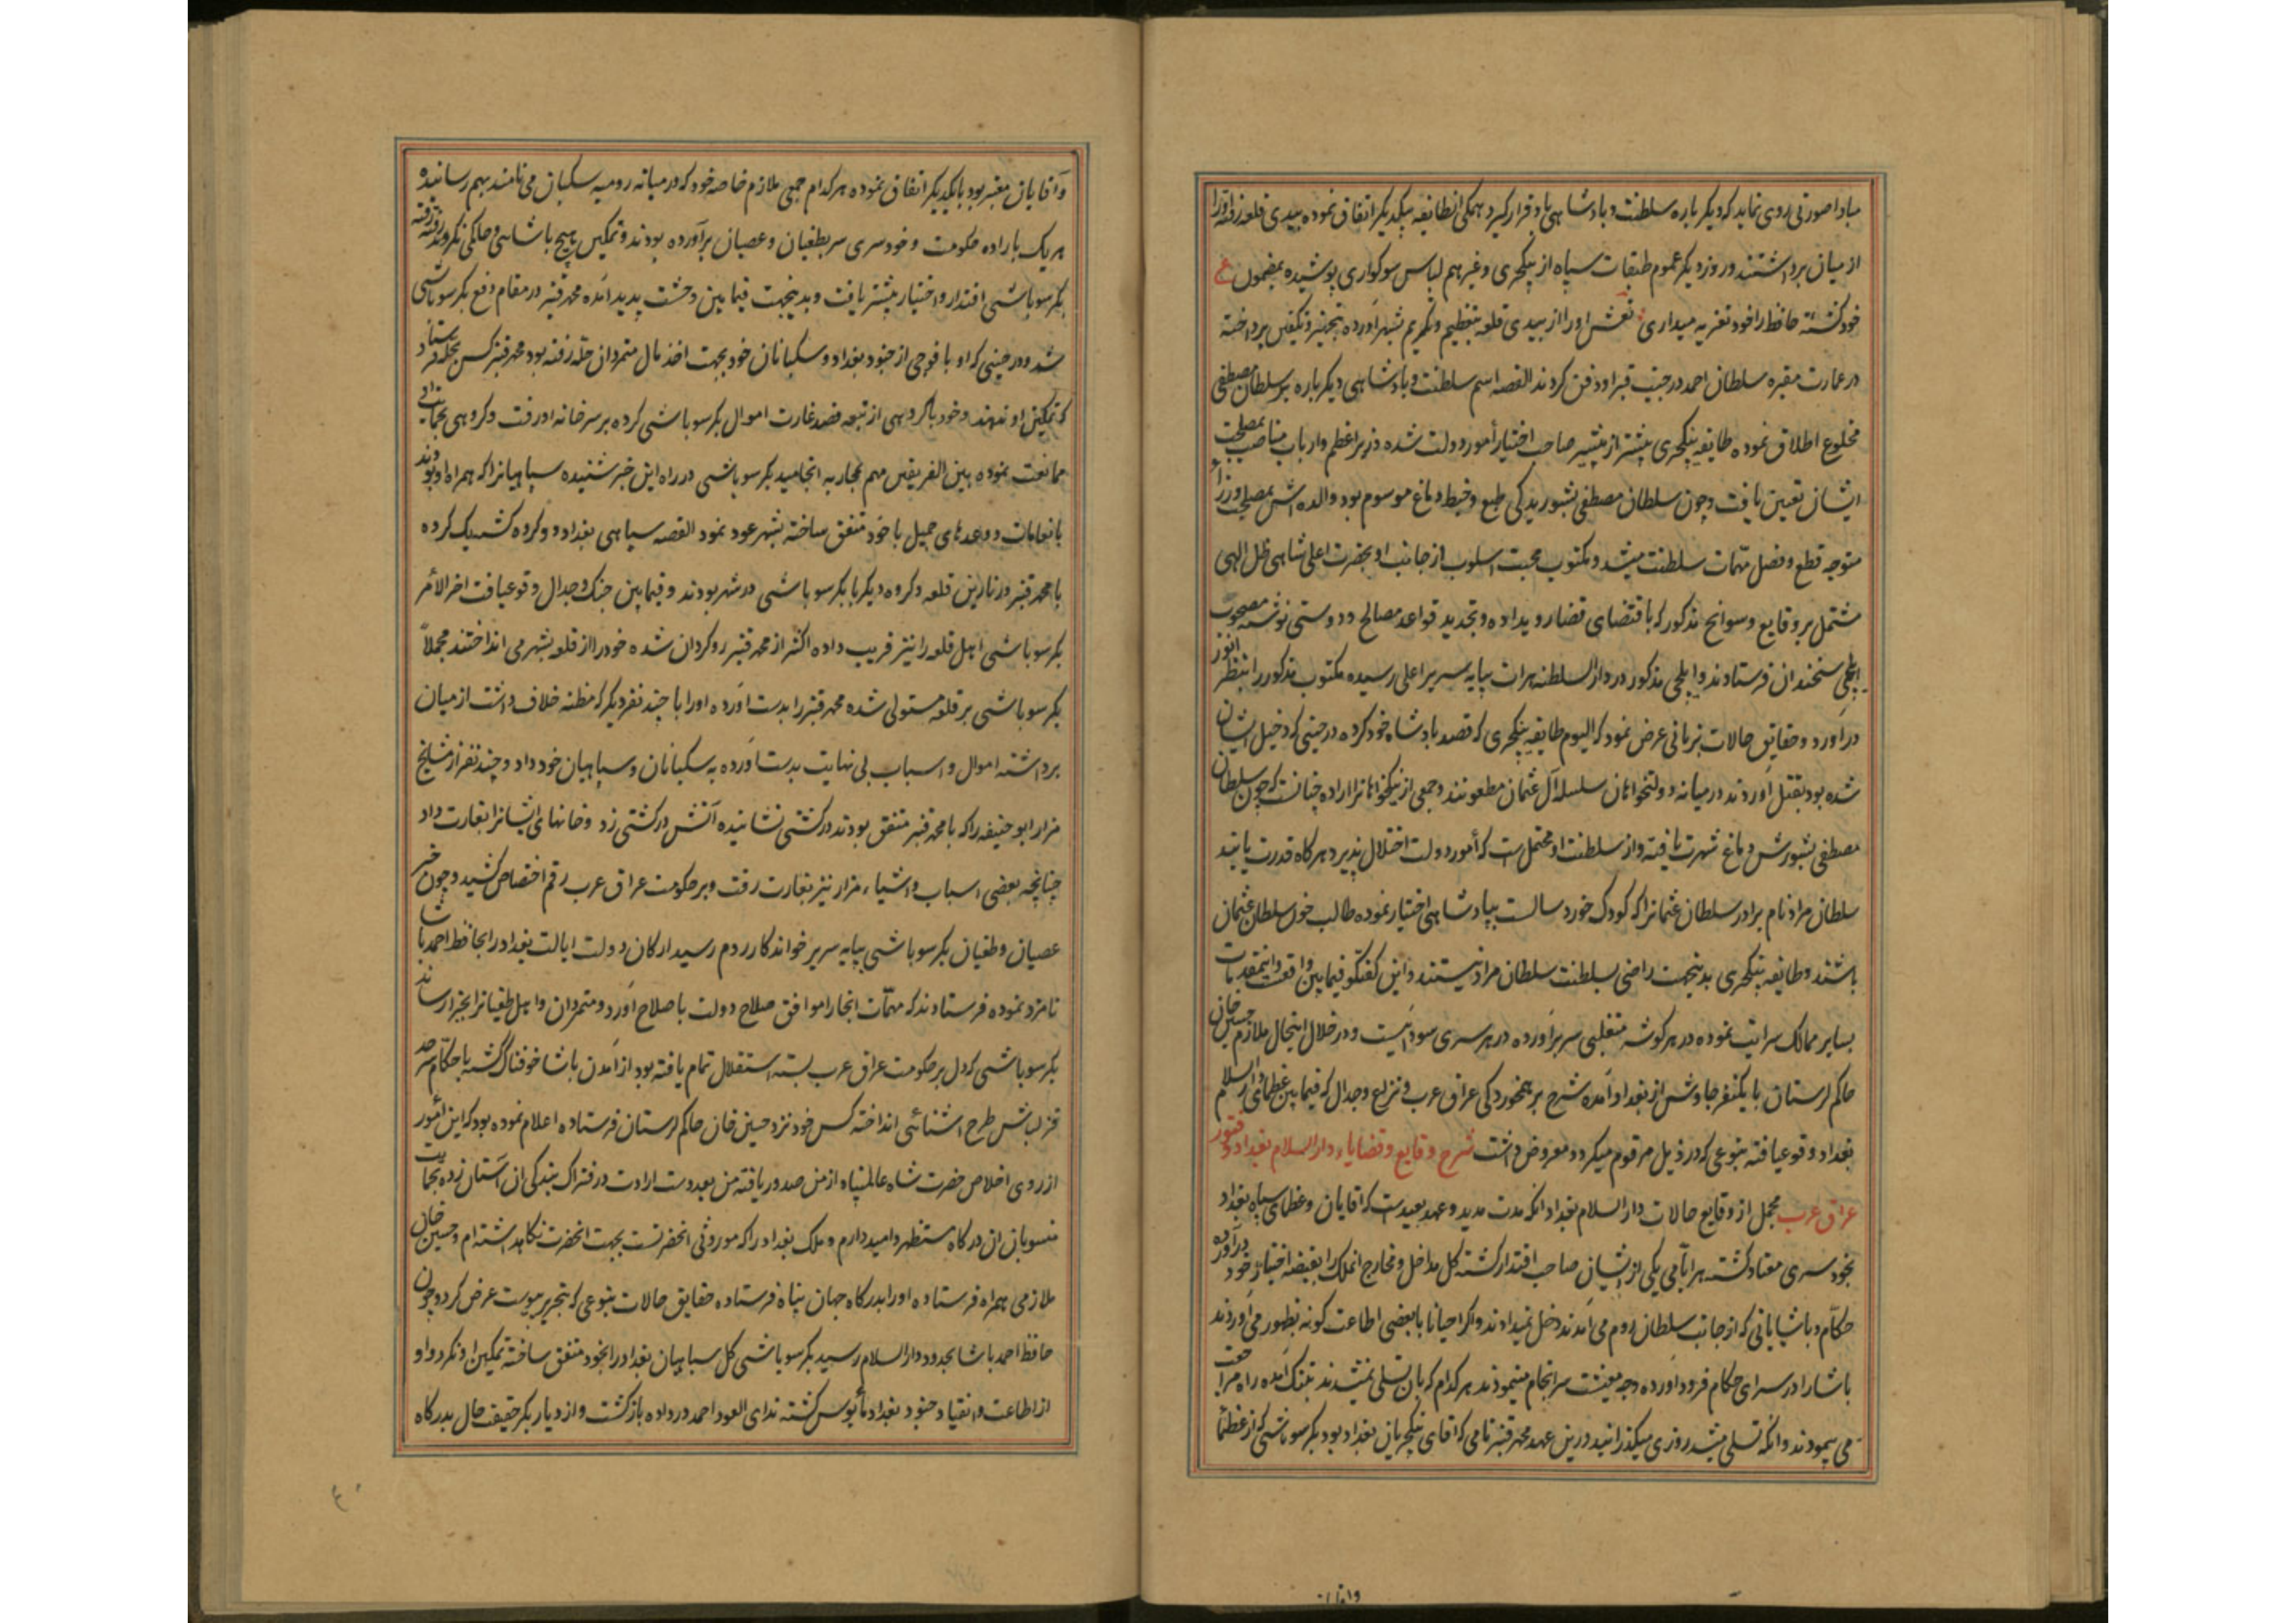 مبادا صورتی روی نماید که دیگر باره سلطنت و پادشاهی باو قرار گیرد همگی انطایفه بیکدیگر اتفاق نموده بیدی قلعه رفته او را
از میان برداشتند و روز دیگر عموم طبقات سپاه از ینکچری و غیرهم لباس سوکواری پوشیده بمضمون ع
خود کشتهٔ حافظ را خود تعزیه میداری نعش او را از بیدی قلعه بتعظیم و تکریم بشهر آورده بتجهیز و تکفین پرداخته
در عمارت مقبره سلطان احمد در جنب قبر او دفن کردند القصه اسم سلطنت و پادشاهی دیگر باره بر سلطان مصطفی
مخلوع اطلاق نموده طایفه ینکچری بیشتر از پیشتر صاحب اختیار امور دولت شده وزیر اعظم و ارباب مناصب بمصلحت
ایشان تعیین یافت و چون سلطان مصطفی بشوریدکی طبع و خبط دماغ موسوم بود والده اش بمصلحت وزرا
متوجه قطع و فصل مهمات سلطنت میشد و مکتوب محبت اسلوب از جانب او بحضرت اعلی شاهی ظل الهی
مشتمل بر وقایع و سوانح مذکور که باقتضای قضا رویداده و تجدید قواعد مصالح و دوستی نوشته مصحوب
ایلچی سخندان فرستادند و ایلچی مذکور در دار السلطنه هرات بپایه سریر اعلی رسیده مکتوب مذکور را بنظر انور
در آورد و حقایق حالات بزبانی عرض نمود که الیوم طایفه ینکچری که قصد پادشاه خود کرده در حینی که دخیل ایشان
شده بود بقتل آوردند در میانه دولتخواهان سلسله آل عثمان مطعونند و جمعی از نیکخواهانرا اراده چنانست که چون سلطان
مصطفی بشورش دماغ شهرت یافته و از سلطنت او محتمل است که امور دولت اختلال پذیرد هر کاه قدرت یابند
سلطان مراد نام برادر سلطان عثمانرا که کودک خورد سالست بپادشاهی اختیار نموده طالب خون سلطان عثمان
باشند و طایفه ینکچری بدینجهت راضی بسلطنت سلطان مراد نیستند و این گفتگو فیما بین واقعست و اینمقدمات
بسایر ممالک سرایت نموده در هر گوشه متغلبی سر برآورده در هر سری سودائیست و در خلال اینحال ملازم حسین خان
حاکم لرستان با یکنفر جاوش از بغداد آمده شرح برهمخوردکی عراق عرب و نزاع و جدال که فیما بین عظمای دار السلام
بغداد وقوع یافته بنوعی که در ذیل مرقوم میگردد معروض داشت شرح وقایع و قضایاء دار السلام بغداد و فتور
عراق عرب مجمل از وقایع حالات دار السلام بغداد آنکه مدت مدید و عهد بعید است که آقایان و عظمای سپاه بغداد
بخود سری معتاد گشته هر ایامی یکی از ایشان صاحب اقتدار گشته کل مداخل و مخارج انملک را بقبضه اختیار خود درآورده
حکام و پاشایانی که از جانب سلطان روم می آمدند دخل نمیدادند و اگر احیانا با بعضی اطاعت گونه بظهور می آوردند
پاشا را در سرای حکام فرود آورده وجه معیشت سرانجام مینمودند هر کدام که بان تسلی نمیشدند بتنگ آمده راه مراجعت
می پیمودند و آنکه تسلی میشد روزی میگذرانید درین عهد محمد قنبر نامی که آقای ینکچریان بغداد بود و بکر سوباشی که از عظماء
و آقایان معتبر بود با یکدیگر اتفاق نموده هر کدام جمعی ملازم خاصه خود که در میانه رومیه سکبان می نامند بهم رسانیده
هر یک باراده حکومت و خودسری سر بطغیان و عصیان برآورده بودند و تمکین هیچ پاشاهی و حاکمی نکردند رفته رفته
بکر سوباشی اقتدار و اختیار بیشتر یافت و بدینجهت فیما بین وحشت پدید آمده محمد قنبر در مقام دفع بکر سوباشی
شد و در حینی که او با فوجی از جنود بغداد و سکبانان خود بجهت اخذ مال متمردان حله رفته بود محمد قنبر کس بحله فرستاد
که تمکین او ندهند و خود با گروهی از تبعه قصد غارت اموال بکر سوباشی کرده بر سر خانه او رفت و گروهی بحمایت او
ممانعت نموده بین الفریقین مهم بمحاربه انجامید بکر سوباشی در راه این خبر شنیده سپاهیانرا که همراه او بودند
بانعامات و وعدهای جمیل با خود متفق ساخته بشهر عود نمود القصه سپاهی بغداد دو گروه گشته یک گروه
با محمد قنبر در نارین قلعه و گروه دیگر با بکر سوباشی در شهر بودند و فیما بین جنگ و جدال وقوع یافت اخر الامر
بکر سوباشی اهل قلعه را نیز فریب داده اکثر از محمد قنبر روگردان شده خود را از قلعه بشهر می انداختند مجملا
بکر سوباشی بر قلعه مستولی شده محمد قنبر را بدست آورده او را با چند نفر دیگر که مظنه خلاف داشت از میان
برداشته اموال و اسباب بی نهایت بدست آورده به سکبانان و سپاهیان خود داد و چند نفر از مشایخ
مزار ابو حنیفه را که با محمد قنبر متفق بودند در کشتی نشانیده آتش در کشتی زد و خانهای ایشانرا بغارت داد
چنانچه بعضی اسباب و اشیاء مزار نیز بغارت رفت و بر حکومت عراق عرب رقم اختصاص کشید و چون خبر
عصیان و طغیان بکر سوباشی بپایه سریر خواندکار روم رسید ارکان دولت ایالت بغداد را بحافظ احمد پاشا
نامزد نموده فرستادند که مهمات انجا را موافق صلاح دولت باصلاح آورد و متمردان و اهل طغیانرا بجزا رساند
بکر سوباشی که دل بر حکومت عراق عرب بسته استقلال تمام یافته بود از آمدن پاشا خوفناک گشته با حکام سرحد
قزلباش طرح اشنائی انداخته کس خود نزد حسین خان حاکم لرستان فرستاده اعلام نموده بود که این امور
از روی اخلاص حضرت شاه عالمپناه از من صدور یافته من بعد دست ارادت در فتراک بندگی ان آستان زده بحمایت
منسوبان ان درگاه مستظهر و امیدوارم و ملک بغداد را که موروثی انحضرتست بجهت انحضرت نگاهداشته ام و حسین خان
ملازمی همراه فرستاده او را بدرگاه جهان پناه فرستاده حقایق حالات بنوعی که بتحریر پیوست عرض کرد و چون
حافظ احمد پاشا بحدود دار السلام رسید بکر سوباشی کل سپاهیان بغداد را بخود متفق ساخته تمکین او نکرد و او
از اطاعت و انقیاد جنود بغداد مأیوس گشته ندای العود احمد در داده بازگشت و از دیار بکر حقیقت حال بدرگاه